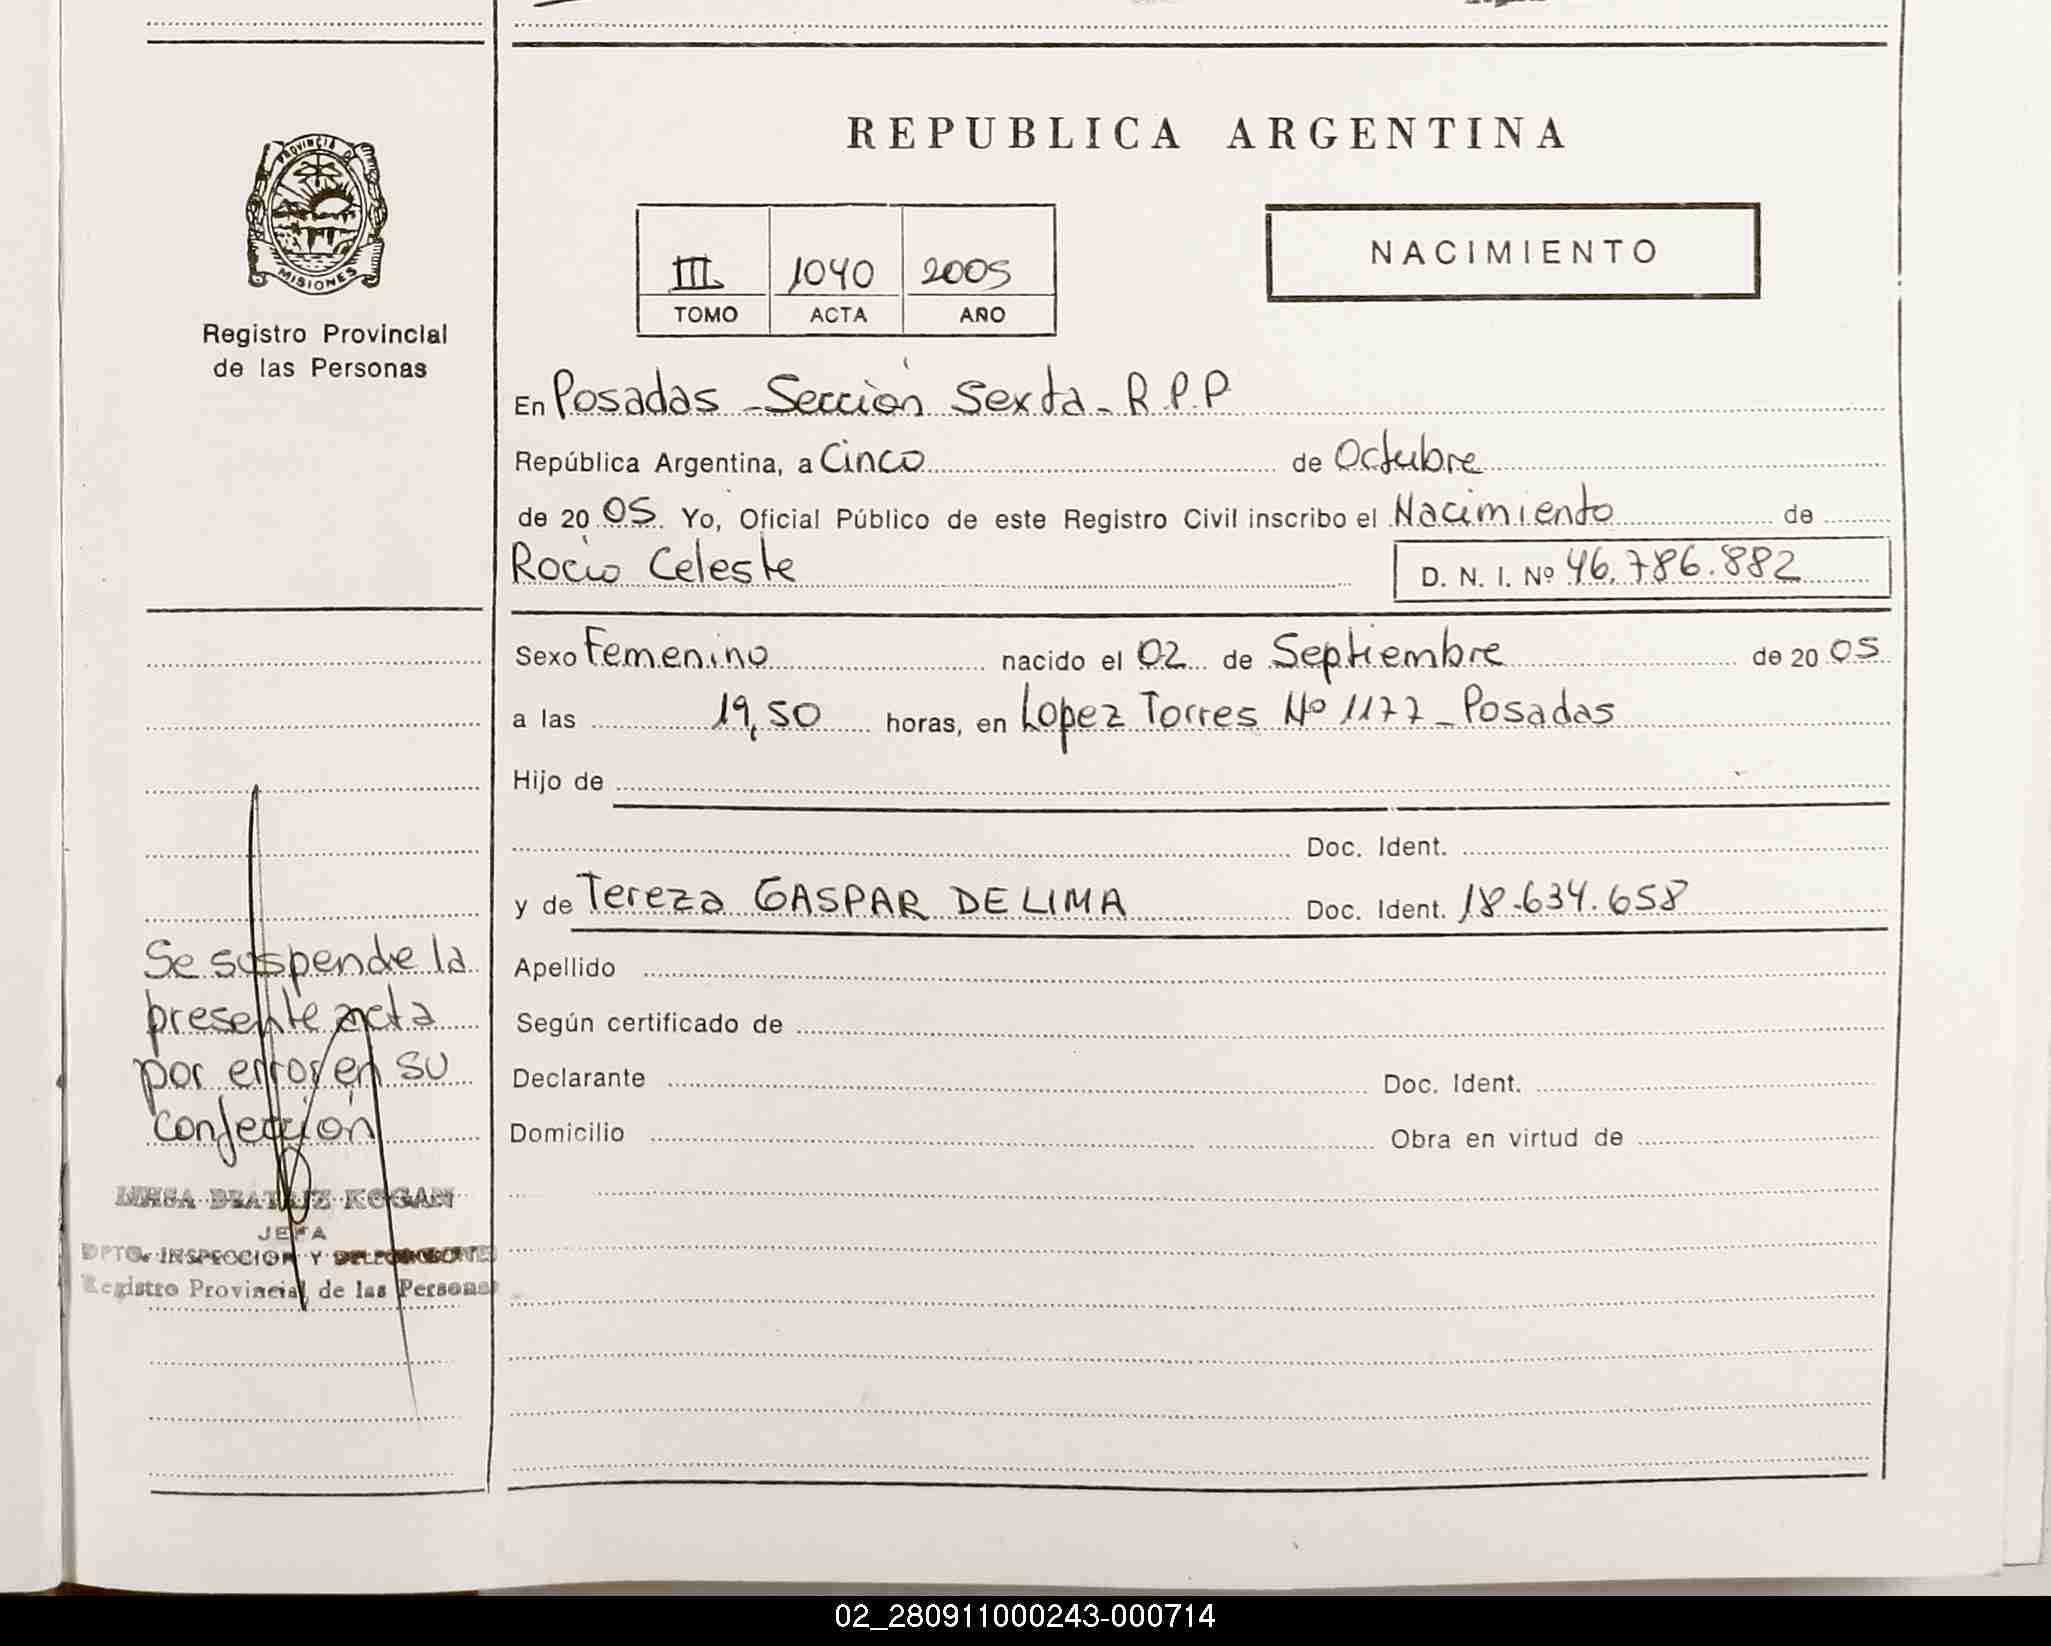 REPUBLICA ARGENTINA
PROVINCIA D
MISIONES
Registro Provincial
de las Personas
III 1040 2005
TOMO ACTA AÑO
NACIMIENTO
En Posadas - Sección Sexta - R.P.P
República Argentina, a Cinco de Octubre
de 20 05 Yo, Oficial Público de este Registro Civil inscribo el Nacimiento de
Rocío Celeste D. N. I. Nº 46.786.882
Sexo Femenino nacido el 02 de Septiembre de 20 05
a las 19,50 horas, en Lopez Torres Nº 1177 - Posadas
Hijo de
Doc. Ident.
y de Tereza GASPAR DE LIMA Doc. Ident. 18.634.658
Apellido
Según certificado de
Declarante Doc. Ident.
Domicilio Obra en virtud de
Se suspende la
presente acta
por error en su
confección
BEATRIZ KOGAN
JEFA
DPTO. INSPECCION Y
Registro Provincial de las Personas
02_280911000243-000714